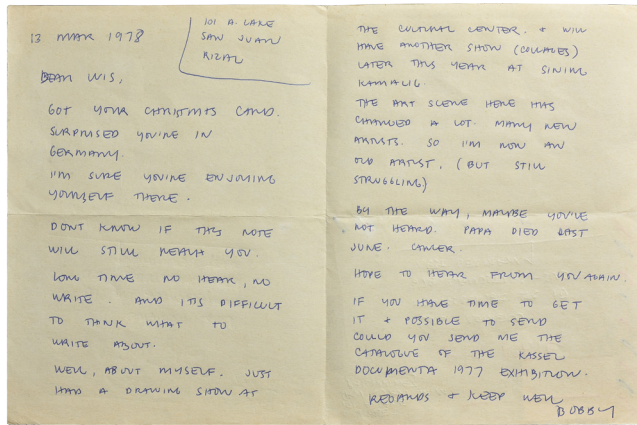 13 MAR 1978
101 A. LAKE
SAN JUAN
RIZAL
DEAR WIS,
GOT YOUR CHRISTMAS CARD.
SURPRISED YOU'RE IN
GERMANY.
I'M SURE YOU'RE ENJOYING
YOURSELF THERE.
DON'T KNOW IF THIS NOTE
WILL STILL REACH YOU.
LONG TIME NO HEAR, NO
WRITE. AND IT'S DIFFICULT
TO THINK WHAT TO
WRITE ABOUT.
WELL, ABOUT MYSELF. JUST
HAD A DRAWING SHOW AT
THE CULTURAL CENTER. & WILL
HAVE ANOTHER SHOW (COLLAGES)
LATER THIS YEAR AT SINING
KAMALIG.
THE ART SCENE HERE HAS
CHANGED A LOT. MANY NEW
ARTISTS. SO I'M NOW AN
OLD ARTIST. (BUT STILL
STRUGGLING)
BY THE WAY, MAYBE YOU'VE
NOT HEARD. PAPA DIED LAST
JUNE. CANCER.
HOPE TO HEAR FROM YOU AGAIN.
IF YOU HAVE TIME TO GET
IT & POSSIBLE TO SEND
COULD YOU SEND ME THE
CATALOGUE OF THE KASSEL
DOCUMENTA 1977 EXHIBITION.
REGARDS & KEEP WELL
BOBBY